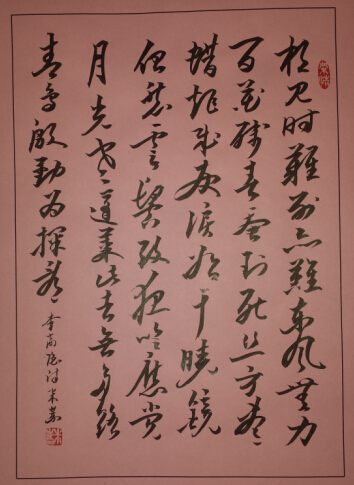 相见时難别亦難东风無力
百花残春蚕到死丝方尽
蜡炬成灰泪始干曉镜
但愁雲鬓改夜吟應觉
月光寒蓬莱此去無多路
青鸟殷勤为探看
李商隐诗